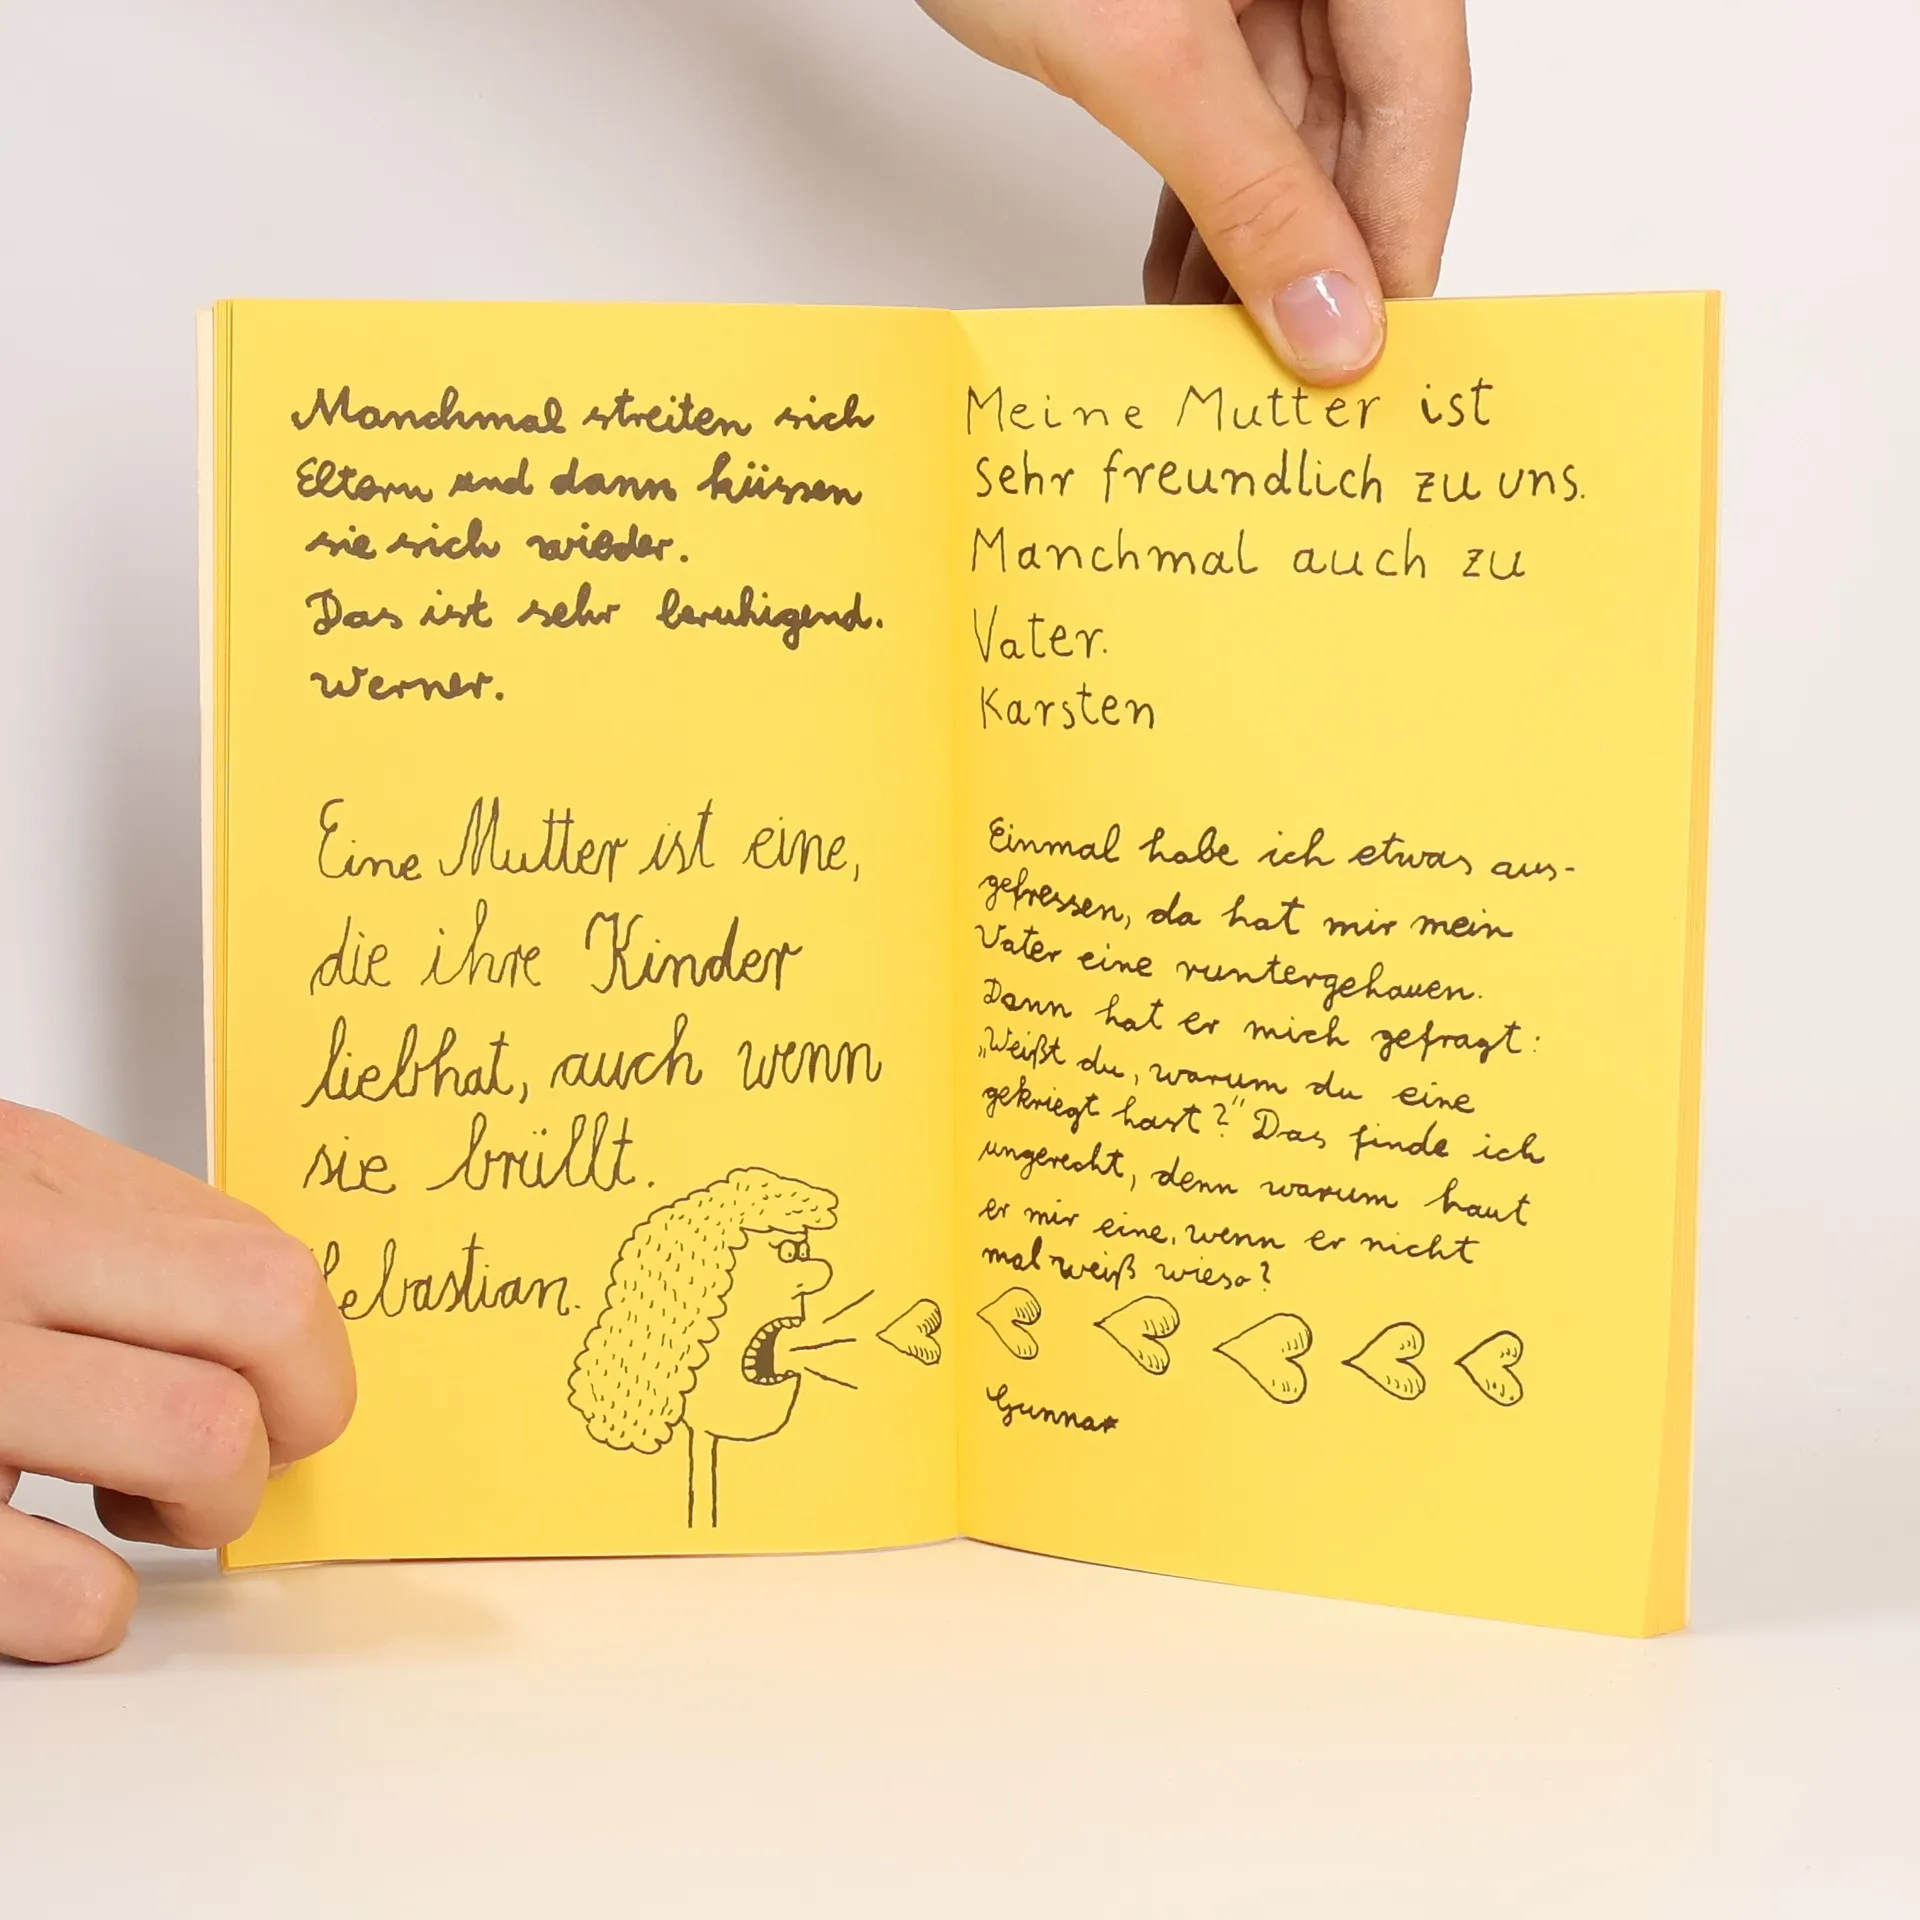 Manchmal streiten sich
Eltern und dann küssen
sie sich wieder.
Das ist sehr beruhigend.
Werner.
Eine Mutter ist eine,
die ihre Kinder
liebhat, auch wenn
sie brüllt.
Sebastian.
Meine Mutter ist
sehr freundlich zu uns.
Manchmal auch zu
Vater.
Karsten
Einmal habe ich etwas aus-
gefressen, da hat mir mein
Vater eine runtergehauen.
Dann hat er mich gefragt:
„Weißt du, warum du eine
gekriegt hast?" Das finde ich
ungerecht, denn warum haut
er mir eine, wenn er nicht
mal weiß wieso?
Gunnar